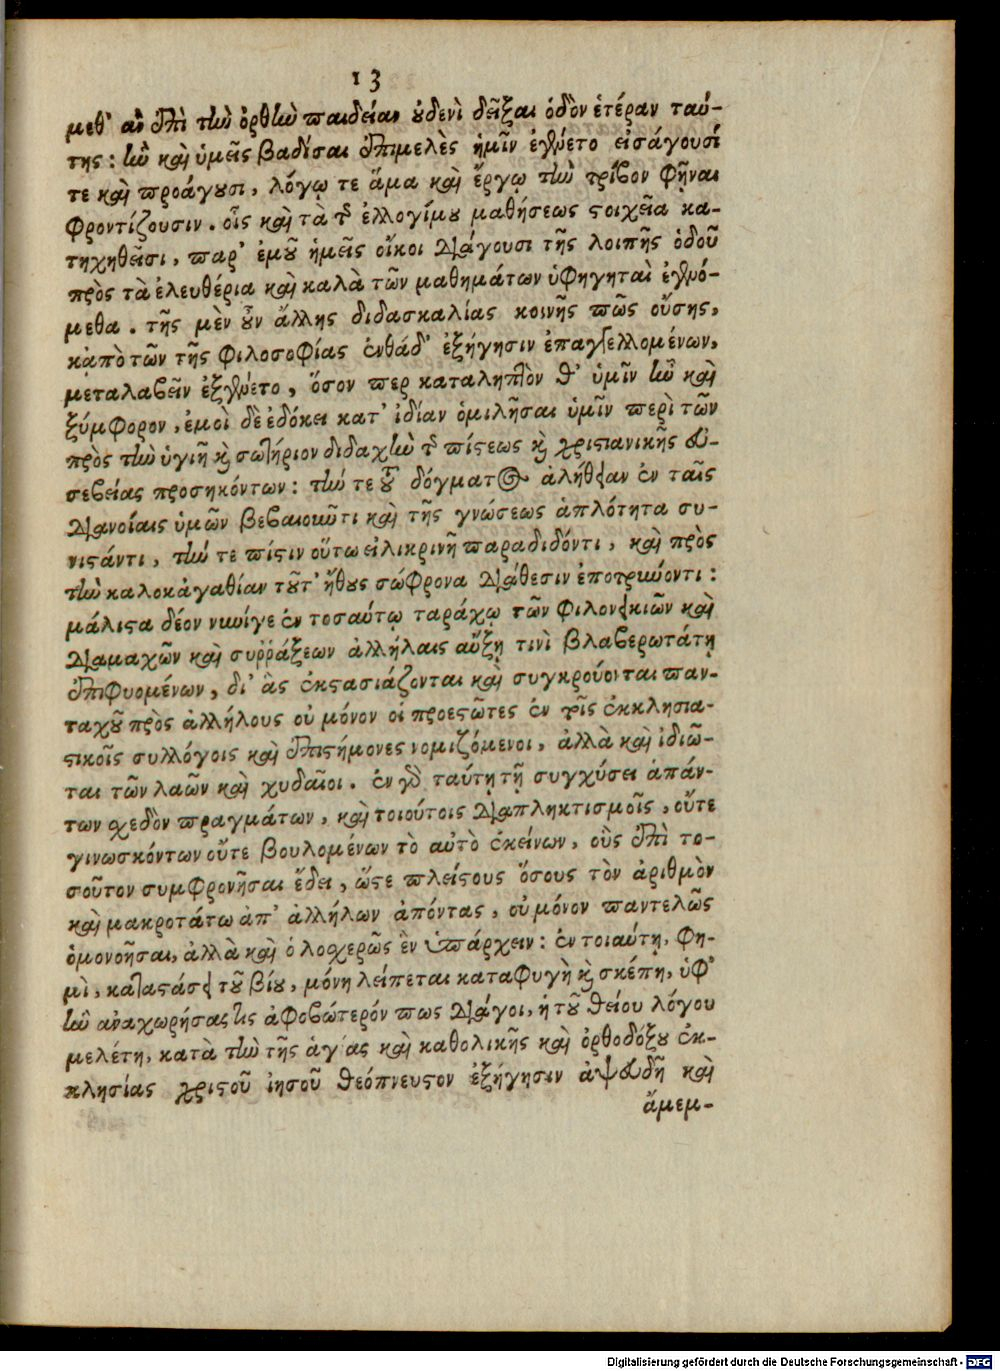 13
μεθ' ἂν ἐπὶ τὴν ὀρθὴν παιδείαν οὐδενὶ δεῖξαι ὁδὸν ἑτέραν ταύ-
της: ἣν καὶ ὑμεῖς βαδίσαι ἐπιμελὲς ἡμῖν ἐγένετο εἰσάγουσί
τε καὶ προάγουσι, λόγῳ τε ἅμα καὶ ἔργῳ τὴν τρίβον φῆναι
φροντίζουσιν. οἷς καὶ τὰ τῆς ἐλλογίμου μαθήσεως στοιχεῖα κα-
τηχηθεῖσι, παρ' ἐμοῦ ἡμεῖς οἴκοι διάγουσι τῆς λοιπῆς ὁδοῦ
πρὸς τὰ ἐλευθέρια καὶ καλὰ τῶν μαθημάτων ὑφηγηταὶ ἐγενό-
μεθα. τῆς μὲν οὖν ἄλλης διδασκαλίας κοινῆς πῶς οὔσης,
κἀπὸ τῶν τῆς φιλοσοφίας ἐνθάδ' ἐξήγησιν ἐπαγγελλομένων,
μεταλαβεῖν ἐξεγένετο, ὅσον περ καταληπτὸν θ' ὑμῖν ἦν καὶ
ξύμφορον, ἐμοὶ δὲ ἐδόκει κατ' ἰδίαν ὁμιλῆσαι ὑμῖν περὶ τῶν
πρὸς τὴν ὑγιῆ καὶ σωτήριον διδαχὴν τῆς πίστεως καὶ χριστιανικῆς εὐ-
σεβείας προσηκόντων: τήν τε τοῦ δόγματος ἀλήθειαν ἐν ταῖς
διανοίαις ὑμῶν βεβαιοῦντι καὶ τῆς γνώσεως ἁπλότητα συ-
νιστάντι, τήν τε πίστιν οὕτω εἰλικρινῆ παραδιδόντι, καὶ πρὸς
τὴν καλοκἀγαθίαν τοῦτ' ἤθους σώφρονα διάθεσιν ἐποτρύνοντι:
μάλιστα δέον νυνί γε ἐν τοσαύτῳ ταράχῳ τῶν φιλονεικιῶν καὶ
διαμαχῶν καὶ συῤῥάξεων ἀλλήλαις αὔξῃ τινὶ βλαβερωτάτῃ
ἐπιφυομένων, δι' ἃς ἐκστασιάζονται καὶ συγκρούονται παν-
ταχοῦ πρὸς ἀλλήλους οὐ μόνον οἱ προεστῶτες ἐν τοῖς ἐκκλησια-
στικοῖς συλλόγοις καὶ ἐπιστήμονες νομιζόμενοι, ἀλλὰ καὶ ἰδιῶ-
ται τῶν λαῶν καὶ χυδαῖοι. ἐν γὰρ ταύτῃ τῇ συγχύσει ἁπάν-
των σχεδὸν πραγμάτων, καὶ τοιούτοις διαπληκτισμοῖς, οὔτε
γινωσκόντων οὔτε βουλομένων τὸ αὐτὸ ἐκείνων, οὓς ἐπὶ το-
σοῦτον συμφρονῆσαι ἔδει, ὥστε πλείστους ὅσους τὸν ἀριθμὸν
καὶ μακροτάτω ἀπ' ἀλλήλων ἀπόντας, οὐ μόνον παντελῶς
ὁμονοῆσαι, ἀλλὰ καὶ ὁλοσχερῶς ἓν ὑπάρχειν: ἐν τοιαύτῃ, φη-
μὶ, καταστάσει τοῦ βίου, μόνη λείπεται καταφυγὴ καὶ σκέπη, ὑφ'
ἣν ἀναχωρήσας τις ἀφοβώτερόν πως διάγοι, ἡ τοῦ θείου λόγου
μελέτη, κατὰ τὴν τῆς ἁγίας καὶ καθολικῆς καὶ ὀρθοδόξου ἐκ-
κλησίας χριστοῦ ἰησοῦ θεόπνευστον ἐξήγησιν ἀψευδῆ καὶ
ἄμεμ-
Digitalisierung gefördert durch die Deutsche Forschungsgemeinschaft - DFG